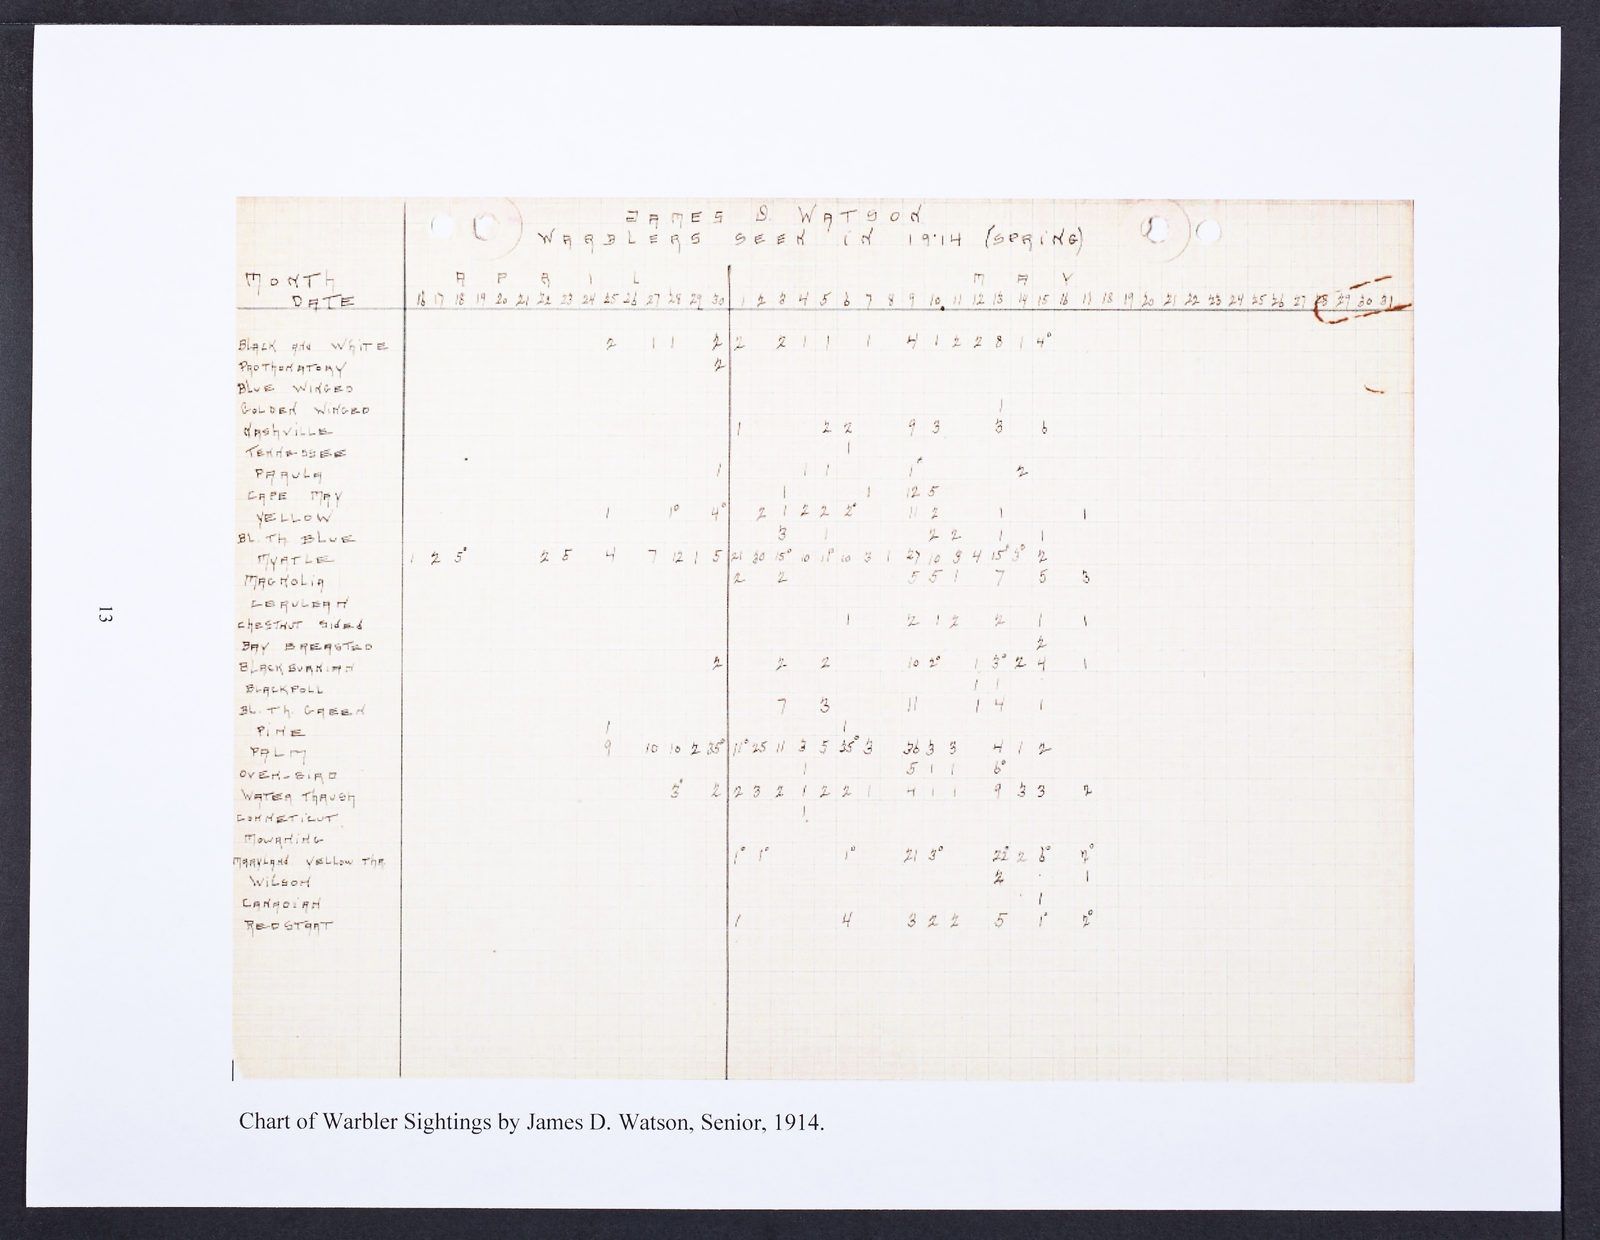 JAMES D. WATSON
WARBLERS SEEN IN 1914 (SPRING)
MONTH APRIL MAY
DATE 16 17 18 19 20 21 22 23 24 25 26 27 28 29 30 1 2 3 4 5 6 7 8 9 10 11 12 13 14 15 16 17 18 19 20 21 22 23 24 25 26 27 28 29 30 31
BLACK AND WHITE 2 1 1 2 2 2 1 1 1 4 1 2 2 8 1 4°
PROTHONATORY 2
BLUE WINGED
GOLDEN WINGED 1
NASHVILLE 1 2 2 9 3 3 6
TENNESSEE 1
PARULA 1 1 1 1° 2
CAPE MAY 1 1 12 5
YELLOW 1 1° 4° 2 1 2 2 2° 11 2 1 1
BL. Th BLUE 3 1 2 2 1 1
MYRTLE 1 2 5° 2 5 4 7 12 1 5 21 30 15° 10 18° 10 3 1 27 10 3 4 15° 3° 2
MAGNOLIA 2 2 5 5 1 7 5 3
CERULEAN
CHESTNUT SIDED 1 2 1 2 2 1 1
BAY BREASTED 2
BLACKBURNIAN 2 2 2 10 2° 1 3° 2 4 1
BLACKPOLL 1 1
BL. Th. GREEN 7 3 11 1 4 1
PINE 1 1
PALM 9 10 10 2 35° 11° 25 11 3 5 35° 3 36 3 3 4 1 2
OVEN-BIRD 1 5 1 1 6°
WATER THRUSH 3° 2 2 3 2 1 2 2 1 4 1 1 9 3 3 2
CONNETICUT 1
MOURNING
MARYLAND YELLOW THR 1° 1° 1° 21 3° 22° 2 6° 2°
WILSON 2 1
CANADIAN 1
REDSTART 1 4 3 2 2 5 1° 2°
13
Chart of Warbler Sightings by James D. Watson, Senior, 1914.